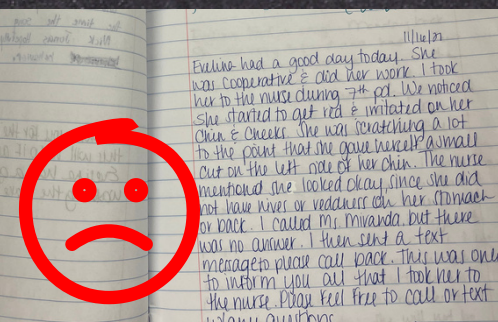 11/16/21
Eveline had a good day today. She
was cooperative & did her work. I took
her to the nurse during 7th pd. We noticed
she started to get red & irritated on her
chin & cheeks. She was scratching a lot
to the point that she gave herself a small
cut on the left side of her chin. The nurse
mentioned she looked okay, since she did
not have hives or redness on her stomach
or back. I called Ms. Miranda, but there
was no answer. I then sent a text
message to please call back. This was only
to inform you all that I took her to
the nurse. Please feel free to call or text
w/any questions.